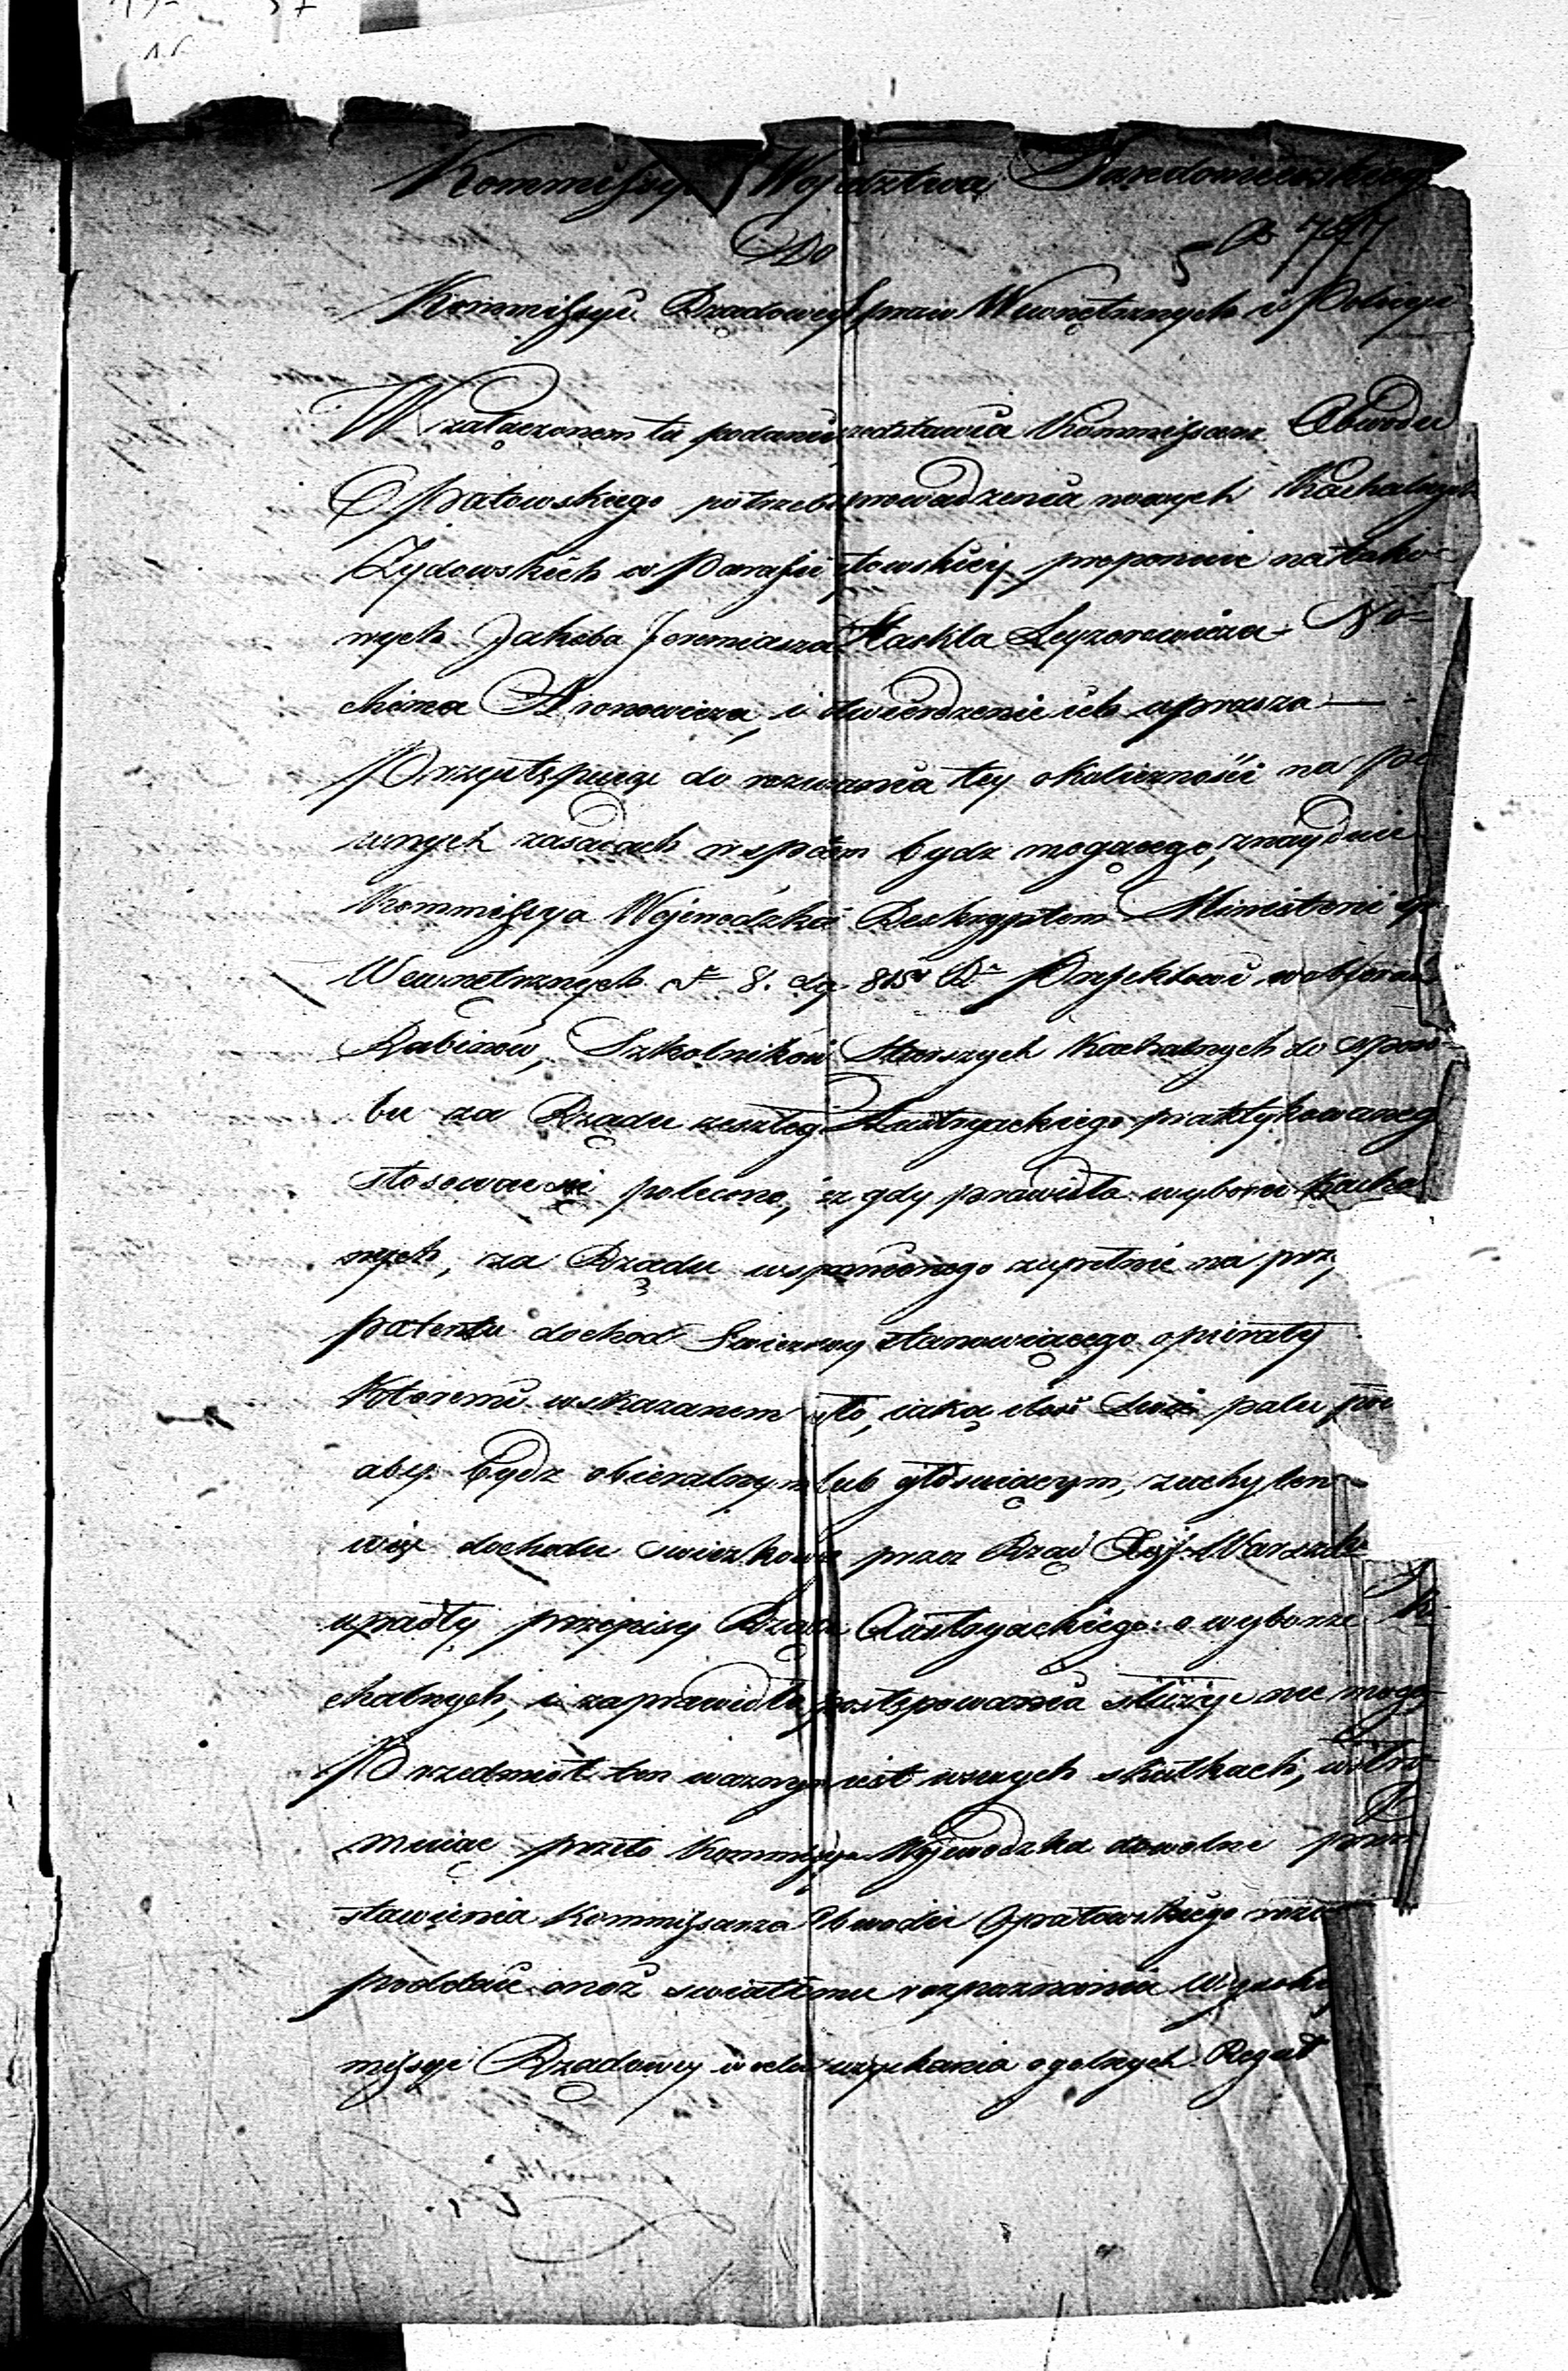 Kommissya Wojewodztwa Sandomierskiego
Do
Kommissyi Rządowey Spraw Wewnętrznych i Policyi
W załączonem tu podaniu przedstawia Kommissarz Obwodu
Opatowskiego potrzebę prowadzenia nowych Kachalnych
Żydowskich w Parafii towskiey, proponuie na tako-
wych Jakoba Jeremiasza Haskla Leyzorowicza No-
chima Aronowicza, i twierdzenie ich uprasza —
Przystępuiąc do rozwiązania tey okoliczności na pe
wnych zasadach wsparem bydz mogącego, znayduie
Kommissya Wojewodzka Reskryptem Ministerii
Wewnętrznych 8. 815 Prefektowi w obiorach
Rabinow, Szkolnikow Starszych Kachalnych do sposo-
bu za Rządu zeszłego Austryackiego praktykowaneg
stosowac się polecono, że gdy prawidła wyboru Kacha
nych, za Rządu wspomnionego zupełnie na prz
patentu dochod Swieczkowy stanowiącego opierały
Ktoremi wskazanem yło, iaką ilość Swiec palić po
aby bydz obieralnym lub głosuiącym, z uchylen
więc dochodu swieczkowe przez Rząd Xię: Warszaw
upadły przepisy Rządu Austryackiego o wyborze Ka
chalnych, i za prawidło postępowania służyć nie mogą
Przedmiot ten waznym iest w swych skutkach, wstrz
muiąc przeto Kommissya Wojewodzka dowolne prze
stawienia Kommissarza Obwodu Opatowskiego
poddaie onoż swiatłemu rozpoznaniu Wysoki
missyi Rządowey w celu uzyskania ogolnych Reguł